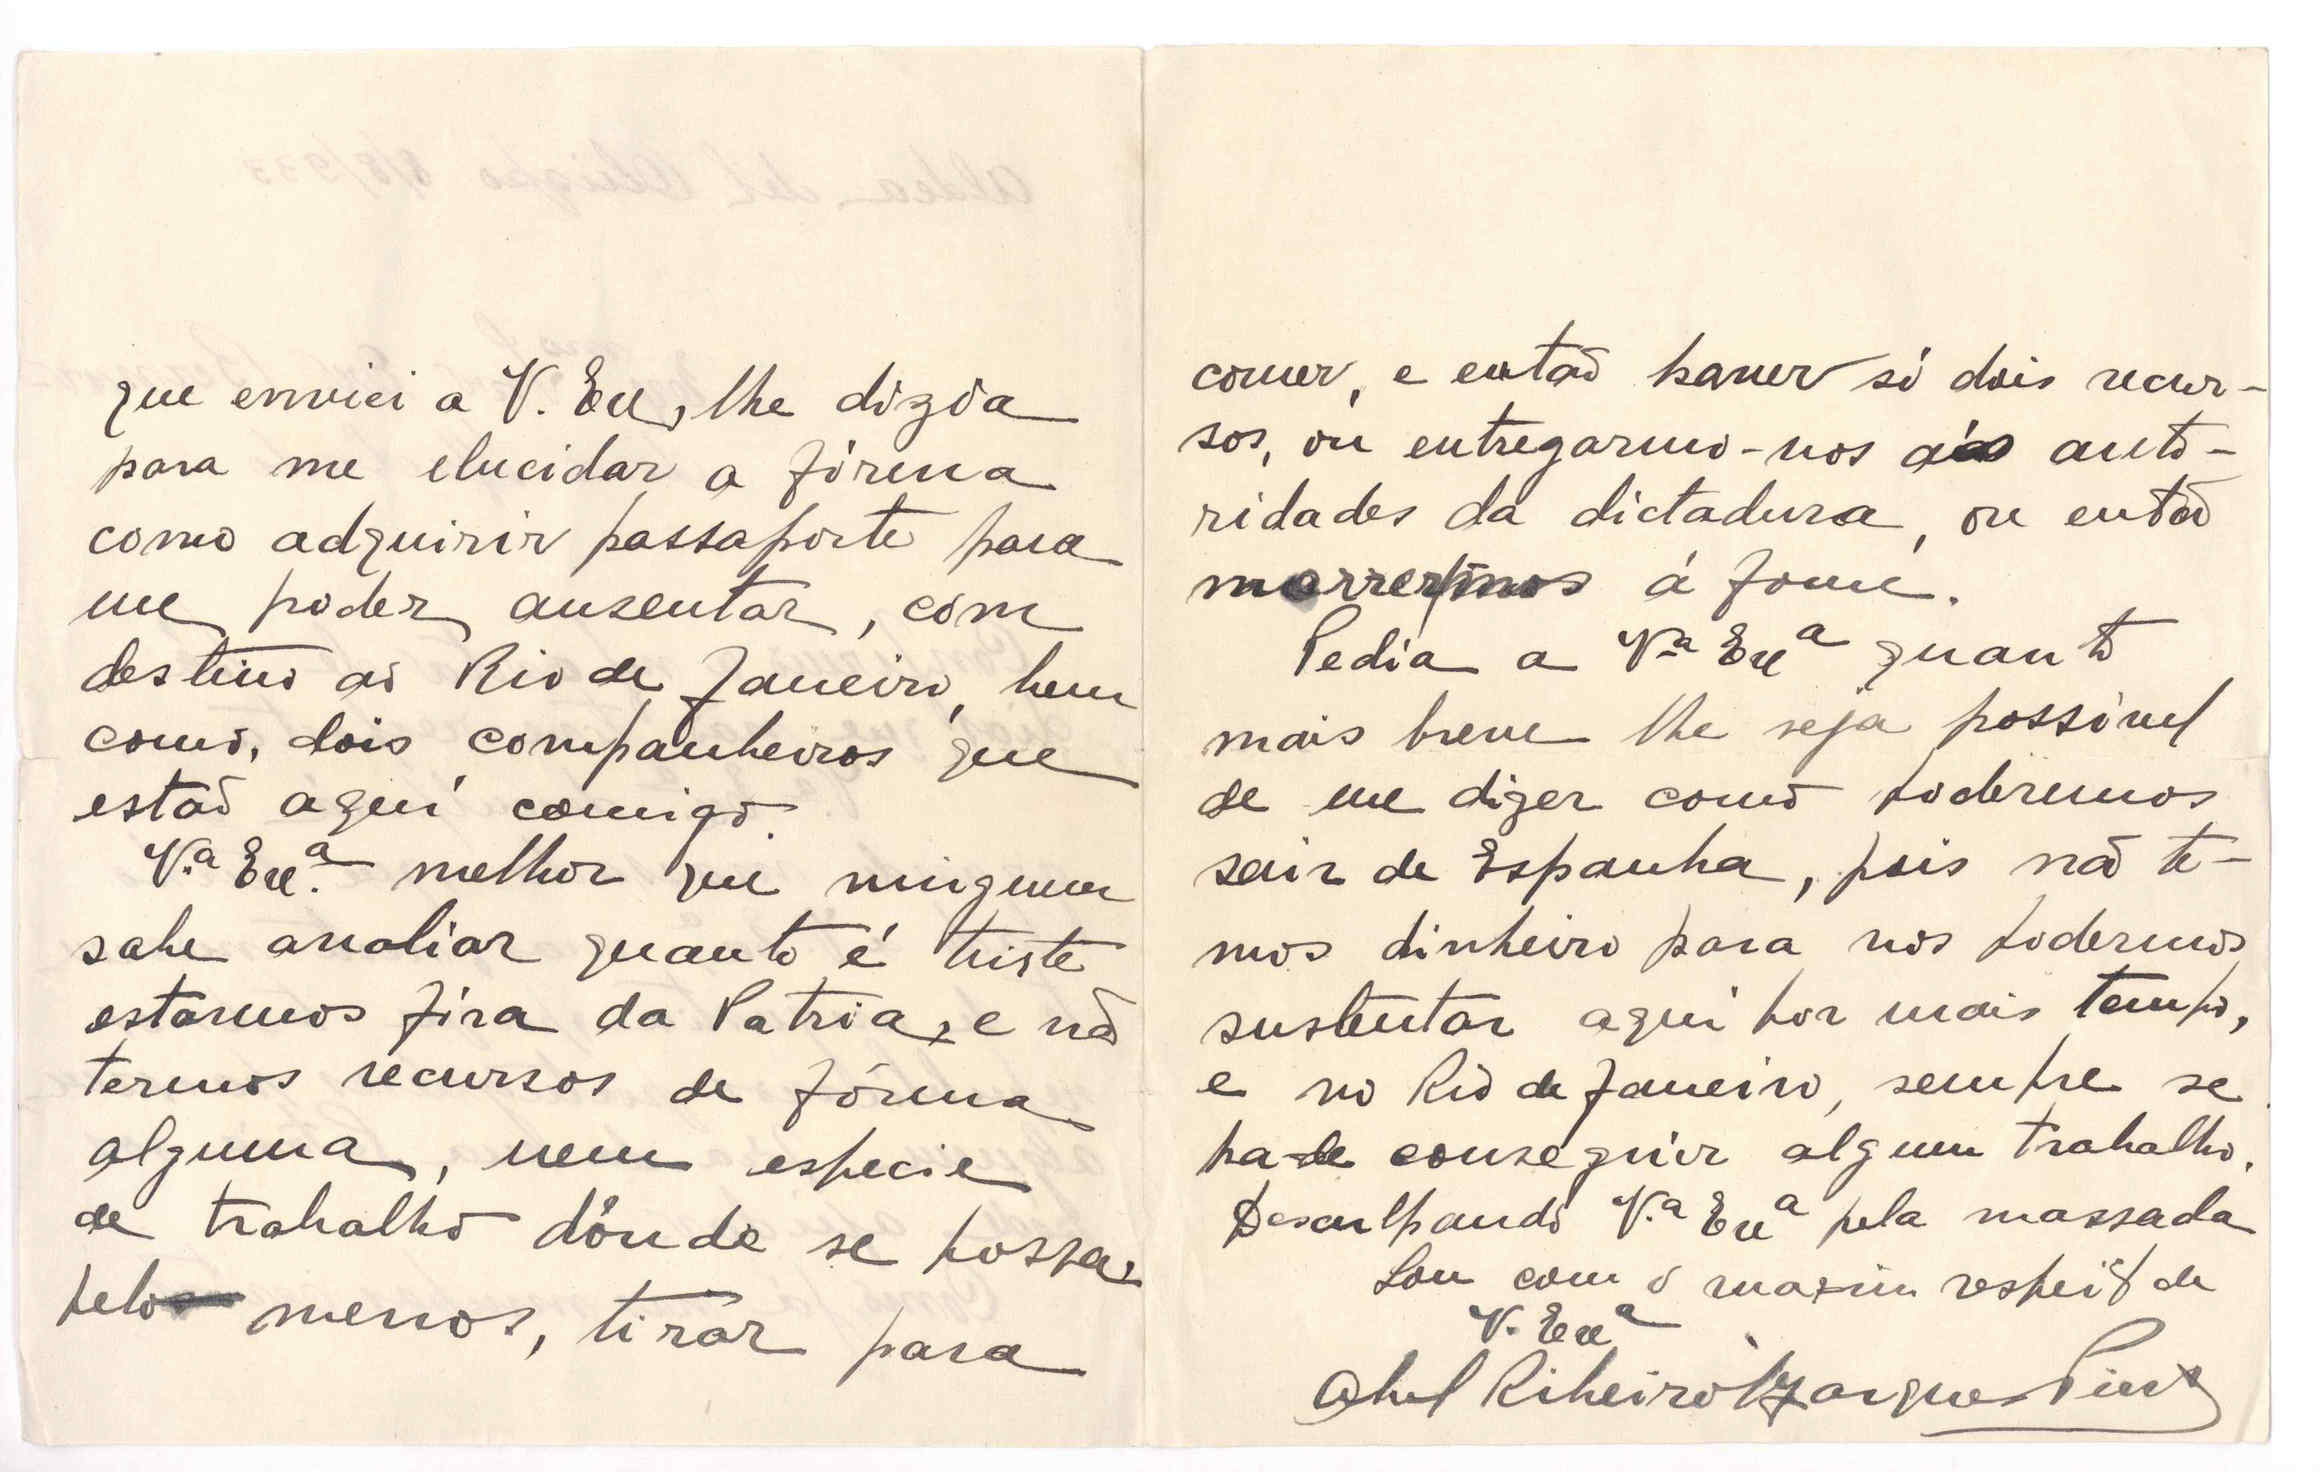 que enviei a V. Exª, lhe dizia
para me elucidar a fórma
como adquirir passaporte para
me poder ausentar, com
destino ao Rio de Janeiro, bem
como, dois companheiros que
estão aqui comigo.
V.ª Ex.ª melhor que ninguem
sabe avaliar quanto é triste
estarmos fóra da Patria, e não
termos recursos de fórma
alguma, nem especie
de trabalho dônde se possa,
pelo menos, tirar para
comer, e então haver só dois recur-
sos, ou entregarmo-nos ás auto-
ridades da dictadura, ou então
morrermos á fome.
Pedia a V.ª Exª quanto
mais breve lhe seja possivel
de me dizer como poderemos
sair de Espanha, pois não te-
mos dinheiro para nos podermos
sustentar aqui por mais tempo,
e no Rio de Janeiro, sempre se
ha-de conseguir algum trabalho.
Desculpando V.ª Exª pela massada
Sou com o maximo respeito de
V. Exª
Abel Ribeiro Marques Pinto